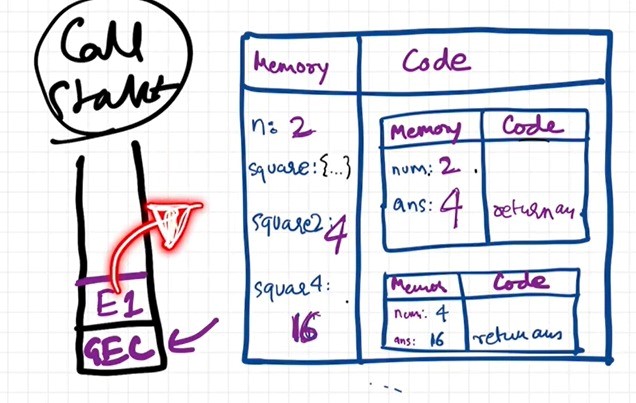 Call
Stakt
E1
GEC
Memory
Code
n: 2
square: {...}
square2: 4
squar4:
16
Memory
Code
num: 2
ans: 4
return an
Memor
Code
num: 4
ans: 16
return ans
...